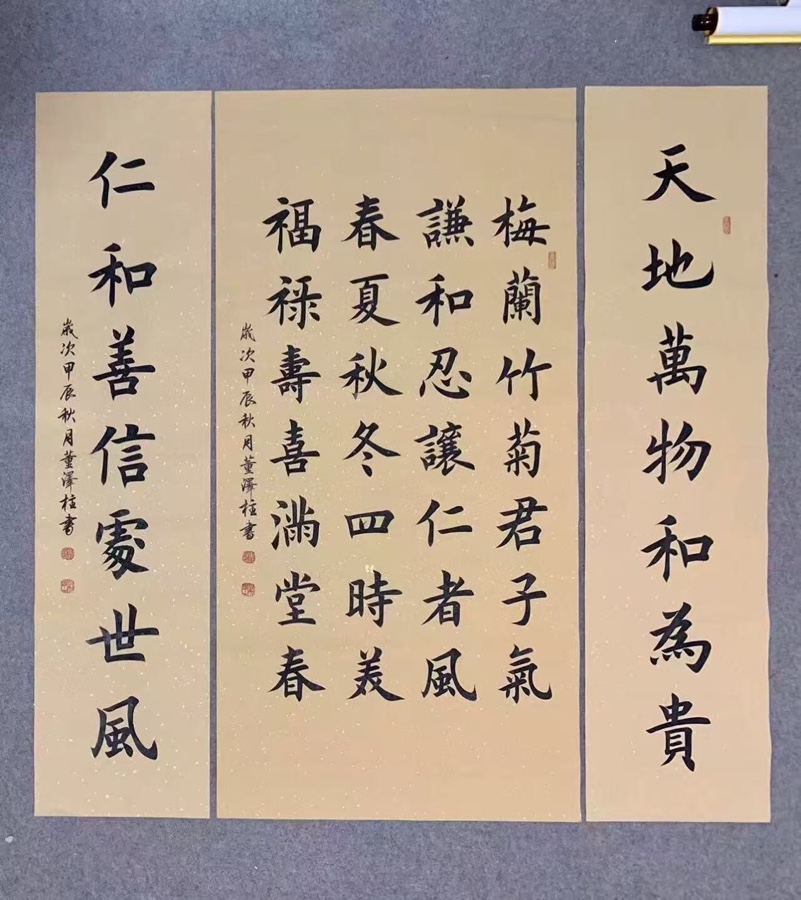 天地萬物和為貴
梅蘭竹菊君子氣
謙和忍讓仁者風
春夏秋冬四時美
福祿壽喜滿堂春
歲次甲辰秋月董澤柱書
仁和善信處世風
歲次甲辰秋月董澤柱書